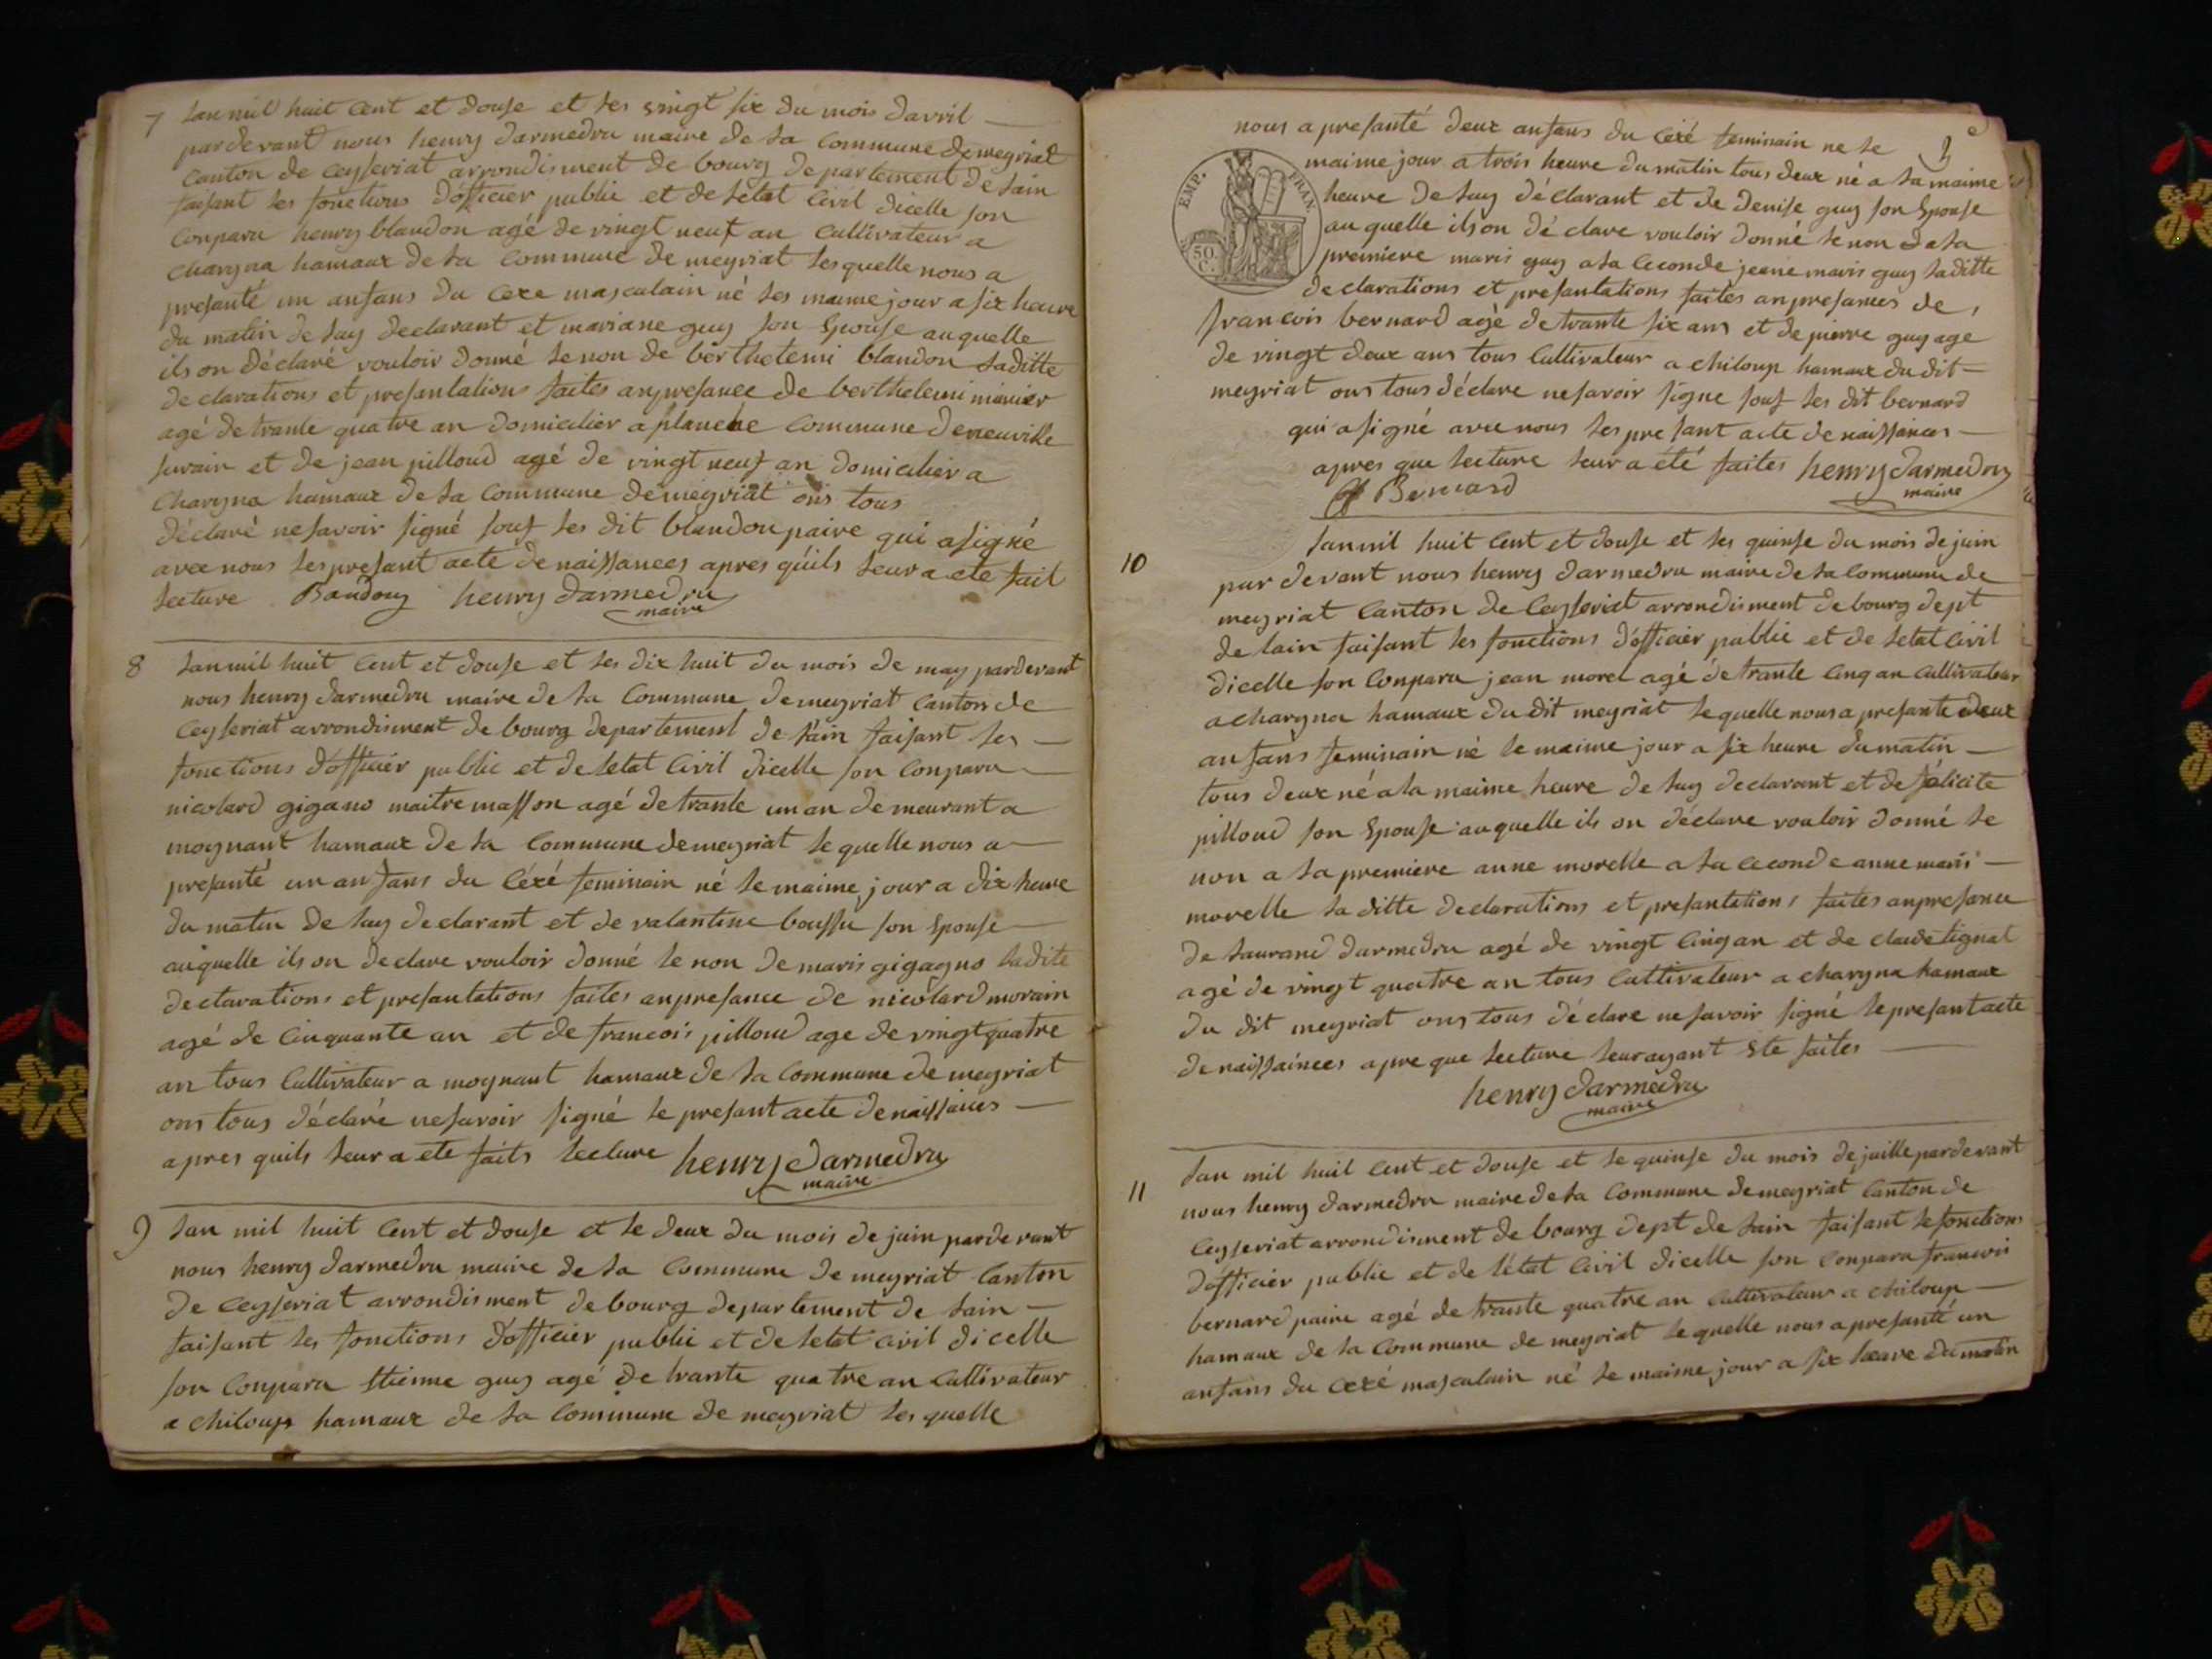 7 Lan mil huit Cent et douse et les vingt six du mois davril
pardevant nous henry darmedru maire de la Commune de megriat
Canton de Ceyseriat arrondisment de bourg departement de lain
faisant les fonctions d'officier public et de létat Civil dicelle son
Conparu henry blaudon agé de vingt neuf an Cultivateur a
Charyna hamaux de la Commune de meyriat lesquelle nous a
presanté un anfans du Cexe masculain né les maime jour a six heure
du matin de luy declarant et mariane guy son Epouse auquelle
ils on déclaré vouloir donné le non de berthelemi blaudon laditte
declarations et presantations faites anpresance de berthelemi minier
agé de trante quatre an domicilier a planche Commune de neuville
surain et de jean pilloud agé de vingt neuf an domicilier a
Charyna hamaux de la Commune de meyriat ons tous
déclaré nesavoir signé souf les dit blaudon paire qui a signé
avec nous les presant acte de naissances apres quils leur a ete fait
lecture Baudouy henry darmedru
maire
8 Lan mil huit Cent et douse et les dix huit du mois de may pardevant
nous henry darmedru maire de la Commune de meyriat Canton de
Ceyseriat arrondisment de bourg departement de lain faisant les
fonctions d'officier public et de letat Civil dicelle son Conparu
nicolard gigano maitre masson agé de trante un an demeurant a
moynant hamaux de la Commune de meyriat le quelle nous a
presanté un anfans du Céxé feminain né le maime jour a dix heure
du matin de luy declarant et de valantine boussu son Epouse
auquelle ils on declare vouloir donné le non de maris gigagno ladite
declarations et presantations faites anpresance de nicolard morain
agé de Cinquante an et de francois pilloud age de vingt quatre
an tous Cultivateur a moynant hamaux de la Commune de meyriat
ons tous déclaré nesavoir signé le presant acte de naissances
apres quils leur a ete faits lecture henry darmedru
maire
9 Lan mil huit Cent et douse et le deux du mois de juin pardevant
nous henry darmedru maire de la Commune de meyriat Canton
de Ceyseriat arrondisment de bourg departement de lain
faisant les fonctions d'officier public et de letat Civil dicelle
son Conparu Etienne guy agé de trante quatre an Cultivateur
a Chiloup hamaux de la Commune de meyriat les quelle
nous a presanté deux anfans du Céxé feminain ne le
EMP. FRAN.
50 C.
maime jour a trois heure du matin tous deux né a la maime
heure de luy déclarant et de denise guy son Epouse
au quelle ils on déclare vouloir donné le non de la
premiere maris guy a la Ceconde jeane maris guy laditte
declarations et presantations faites anpresances de
francois bernard agé de trante six ans et de pierre guy age
de vingt deux ans tous Cultivateur a Chiloup hamaux du dit
meyriat ons tous déclare nesavoir signe souf les dit bernard
qui a signé avec nous les presant acte de naissances
apres que lecture leur a été faites henry darmedru
Bernard maire
10 Lan mil huit Cent et douse et les quinse du mois de juin
par devant nous henry darmedru maire de la Commune de
meyriat Canton de Ceyseriat arrondisment de bourg dept
de lain faisant les fonctions d'officier public et de letat Civil
dicelle son Conparu jean morel agé de trante Cinq an Cultivateur
a Charyna hamaux du dit meyriat le quelle nous a presante deux
anfans feminain né le maime jour a six heure du matin
tous deux né a la maime heure de luy declarant et de félicite
pilloud son Epouse auquelle ils on déclare vouloir donné le
non a la premiere anne morelle a la Ceconde anne maris
morelle laditte declarations et presantations faites anpresance
de laurand darmedru agé de vingt Cinq an et de claude lignat
agé de vingt quatre an tous Cultivateur a Charyna hamaux
du dit meyriat ons tous déclare nesavoir signé le presant acte
de naissainces apre que lecture leur ayant Ete faites
henry darmedru
maire
11 Lan mil huit Cent et douse et le quinse du mois de juille pardevant
nous henry darmedru maire de la Commune de meyriat Canton de
Ceyseriat arrondisment de bourg dept de lain faisant le fonctions
d'officier public et de létat Civil dicelle son Conparu francois
bernard paire agé de trante quatre an Cultivateur a Chiloup
hamaux de la Commune de meyriat le quelle nous a presanté un
anfans du Cexé masculain né le maime jour a six heure du matin